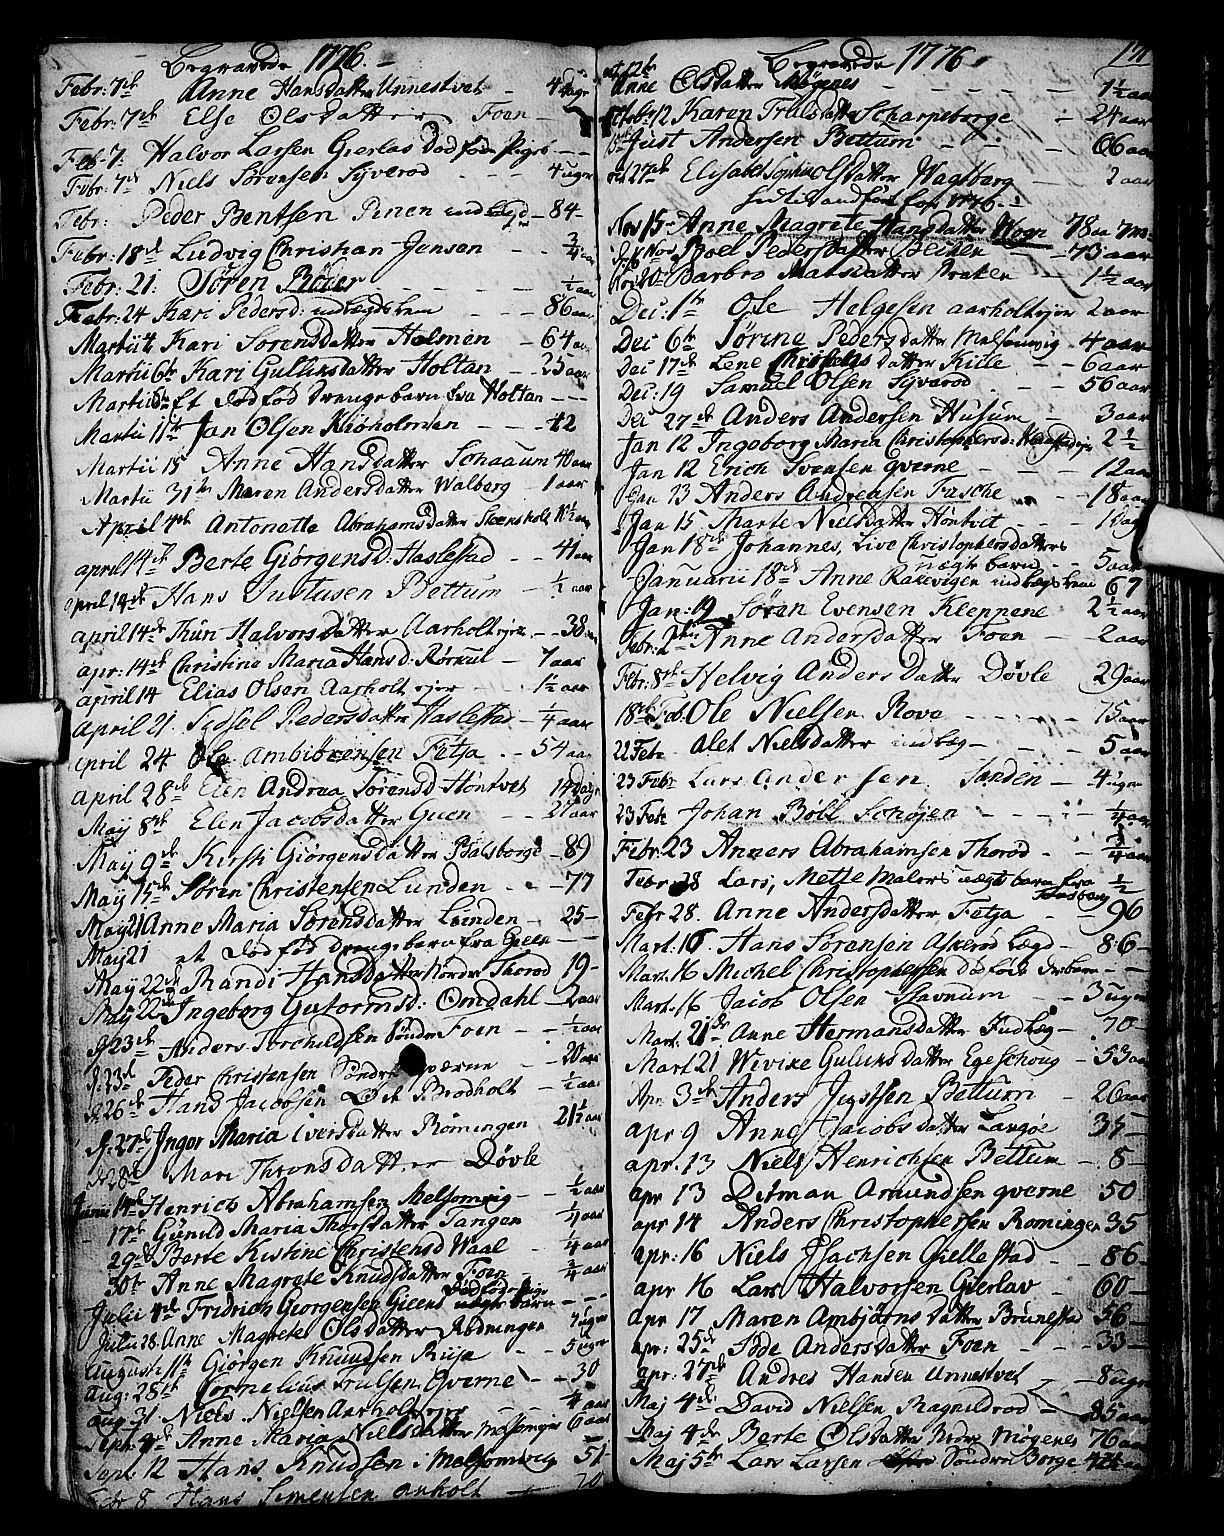 Begravede 1776.
Febr: 7de Anne Hansdatter Unnestvet - 4 dage
Febr: 7de Else Olsdatter Foen -
Feb: 7. Halvor Larsen Gierløs dødfød Pige -
Febr: 7de Niels Sørensen Syverød - 4 uger
Febr: Peder Bentsen Pinen indlegd - 84 -
Febr: 18de Ludvig Christian Jensen - 3/4 aar
Febr: 21. Søren Røver - 1/2 aar
Febr: 24 Kari Pedersd: indlægdslem - 86 aar
Martii 4 Kari Sorensdatter Holmen - 64 aar
Martii 6te Kari Gulliksdatter Holtan - 25 aar
Martii Et dødfød Drengebarn fra Holtan - - -
Martii 11te Jan Olsen Kiøholmen - 42
Martii 15 Anne Hansdatter Schaaum 40 aar
Martii 31te Maren Andersdatter Walberg - 1 aar
April 4de Antonetta Abrahamsdatter Steensholt 10 1/2 aar
april 14de Berte Giørgensd: Haslestad - 41 aar
april 14de Hans Justusen Bettum - 1/2 aar
april 14de Thuri Halvorsdatter Aarholt eje - - 38 aar
apr: 14de Christine Maria Hansd: Rørkul - 7 aar
april 14 Elias Olsen Aarholt ejer - 1 1/2 aar
April 21. Sidsel Pedersdatter Haslestad - 1/4 aar
april 24 Ole Ambiörensen Fetja - 54 aar
april 28de Elen Andrea Sörensd Höntvet 14 Dage
May 8de Elen Jacobsdatter Gueen - 21 aar
May 9de Kirsti Giörgensdatter Balsberge - 89
May 15de Søren Christensen Lunden - 77
May 21 Anne Maria Sorensdatter Lunden - 25 -
May 21 et dødfød drengebarn fra Gieen - - -
May 22de Randi Hansdatter Nordre Thorød 19 -
May 22de Ingeborg Gutormsd: Omdahl - 2 aar
d: 23de Anders Torchildsen Söndre Foen - - 1/2 aar
d: 23d Peder Christensen Söndre qværne - 20 aar
d: 26de Hans Jacobsen Brodholt - 1/2 aar
d: 27de Inger Maria Iversdatter Römingen 21 1/2 aar
d: 28de Mari Thronsdatter Döule
Junii 14de Henrich Abrahamsen Melsomvig - 1/2 aar
17de Gunild Maria Thorsdatter Tangen - 1/4 aar
29de Berte Kistine Christensd Waal - 1/4 aar
30te Anne Magrete Knudsdatter Foen - 3/4 aar
Julii 4de Fridrich Georgensen Gieens dødfødt uægte barn - - -
Julii 28. Anne Magrete Olsdatter Rødningen 7 uger
Augusti 11te Giörgen Knudsen Riise - - 5 uger
Aug: 28de Cornelius Trulsen Qverne - - 30
aug 31 Niels Nielsen Aarholt ejer - 4 aar
Sept: 4de Anne Maria Nielsdatter Melsomvig 6 aar
Sept 12 Hans Knudsen i Melsomvig 51 -
Febr 8 Hans Simensen anholt - 70
Begravede 1776
Anne Olsdatter Mögenes - 1 1/2 aar
octobr: 12 Karen Trulsdatter Scharpeborge - 24 aar
Just Andersen Bettum - 66 aar
oct 27de Elisabet Sophie Olsdatter Wagsberg - 2 aar
Nov 15 - Anne Magrete Hansdatter Wogn 78 aar 7 m:
d: 16 Nov Boel Pedersdatter Becken - - 73 aar
Nov 20 Barbro Madsdatter Braken - 1 1/2 aar
Dec: 1te Ole Helgesen aarholtejer 2 aar
Dec 6te Sørine Pedersdatter Melsomvig - 4 aar
Dec 17de Lene datter Kille - - 6 aar
Dec: 19 Samuel Olsen Syverød - - 56 aar
Dec 27de Anders Andersen Husum - 3 aar
Jan 12 Ingeborg Maria Christophersd: 2 1/2
Jan 12 Erich Svensen qverne - 12 aar
Jan 13 Anders Andreasen Fasche - 18 aar
Jan 15 Marte Nielsdatter Höntvet - 1 Dag
Jan 18de Johannes, Live Christophersdatters
uægte barn - - 5 aar
Januarii 18de Anne Rakevigen indlægdslem 67
Jan: 19 Søren Evensen Kleppene 2 1/2 aar
Febr: 2den Anne Andersdatter Foen - 2 aar
Febr: 8de Helvig Andersdatter Døvle 29 aar
18de Feb. Ole Nielsen Rove - 75 aar
22 Febr alet Nielsdatter indlæg - 5 aar
23 Febr Lars Andersen Sanden - 4 uger
23 Febr Johan Böll Schøjen - 1/4 aar
Febr: 23 Anners Abrahamsen Thoröd - 3/4 aar
Febr 28 Lars, Mette Malers uægt barn fra 1/2
Febr 28. Anne Andersdatter Fetja - 96
Mart. 16 Hans Sørensen Askeröd Lægd - 86 -
Mart. 16 Michel Christophersen dødfødt - -
Mart. 16 Jacob Olsen Stavnum - - 3 uger
Mart. 21de Anne Hermansdatter Indlæg - 70 -
Mart 21 Wivike Guliksdatter Egeschoug - 53 aar
Apr 3de Anders Justsen Bettum - 26 aar
apr 9 Anne Jacobsdatter Langöe - 35 -
apr. 13 Niels Henrichsen Bettum - 8 -
apr 13 Ditman Amundsen qverne 50
apr 14 Anders Christophersen Rominger 35
apr: 16 Niels Isachsen Giellestad - 86 -
apr 16 Lars Halvorsen Gierlav - 60 -
apr 17 Maren Ambjørnsdatter Brunestad 56 -
apr: 25de Ide Andersdatter Foen - - 33 -
apr: 27de Andres Hansen Unnestvet - 8 uger
Maj 4de David Nielsen Ragneldröd - 85 aar
Maj 4de Berte Olsdatter Nordre Mögenes 76 aar
Maj 5te Lars Larsen Söndre Borge